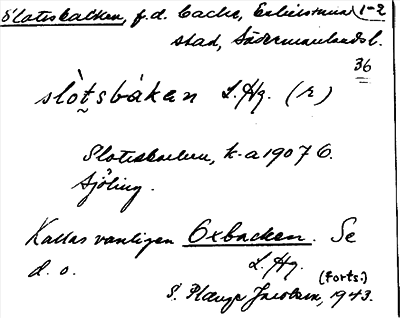 Slottsbacken, f.d. backe, Eskilstuna 1-2
stad, Södermanlands l.
36
slòt̰sbákan L. Hg. (r)
Slottsbacken, k.a 1907 G.
Sjöling.
Kallas vanligen Oxbacken. Se
d. o. L. Hg.
(forts.)
S. Plange Jacobson, 1943.